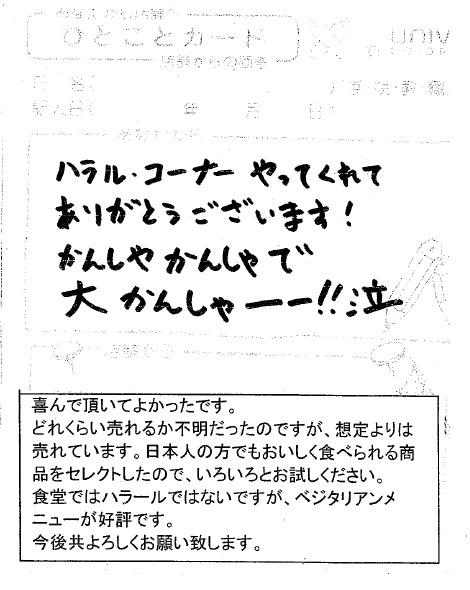 ひとことカード
univ
年 月 日
ハラル・コーナー やってくれて
ありがとうございます!
かんしゃ かんしゃで
大 かんしゃーー!!泣
喜んで頂いてよかったです。
どれくらい売れるか不明だったのですが、想定よりは
売れています。日本人の方でもおいしく食べられる商
品をセレクトしたので、いろいろとお試しください。
食堂ではハラールではないですが、ベジタリアンメ
ニューが好評です。
今後共よろしくお願い致します。